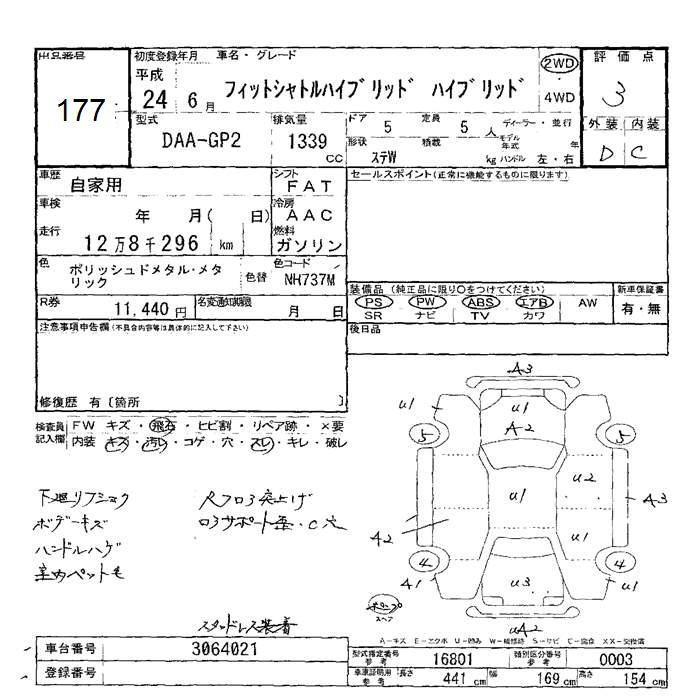 出品番号
177
初度登録年月 車名・グレード
平成
24 6 月 フィットシャトルハイブリッド ハイブリッド
2WD
4WD
評価点
3
外装 内装
D C
型式
DAA-GP2
排気量
1339
cc
ドア 5
定員 5 人
ディーラー・並行
形状 ステW
積載 kg
モデル年式 年
ハンドル 左・右
車歴 自家用
シフト FAT
車検 年 月( 日)
冷房 AAC
走行 12万8千296 km
燃料 ガソリン
色 ポリッシュドメタル・メタリック
色替
色コード NH737M
R券 11,440 円
名変通知期限 月 日
セールスポイント(正常に機能するものに限ります)
装備品 (純正品に限り○をつけてください)
PS PW ABS エアB AW
SR ナビ TV カワ
新車保証書
有・無
後日品
注意事項申告欄(不具合内容等は具体的に記入して下さい)
修復歴 有〔箇所 〕
検査員記入欄
FW キズ・飛石・ヒビ割・リペア跡・×要
内装 キズ・汚レ・コゲ・穴・スレ・キレ・破レ
下廻リフショク
ボデーキズ
ハンドルハゲ
車内ペット毛
スタッドレス装着
A3
U1
U1
A2
5
5
U1
U2
A3
A2
U1
4
4
A1
U3
U1
UA2
スペア
A-キズ E-エクボ U-凹み W-補修跡 S-サビ C-腐食 XX-交換済
車台番号 3064021
登録番号
型式指定番号 参考 16801
類別区分番号 参考 0003
車検証明用 参考 長さ 441 cm 幅 169 cm 高さ 154 cm